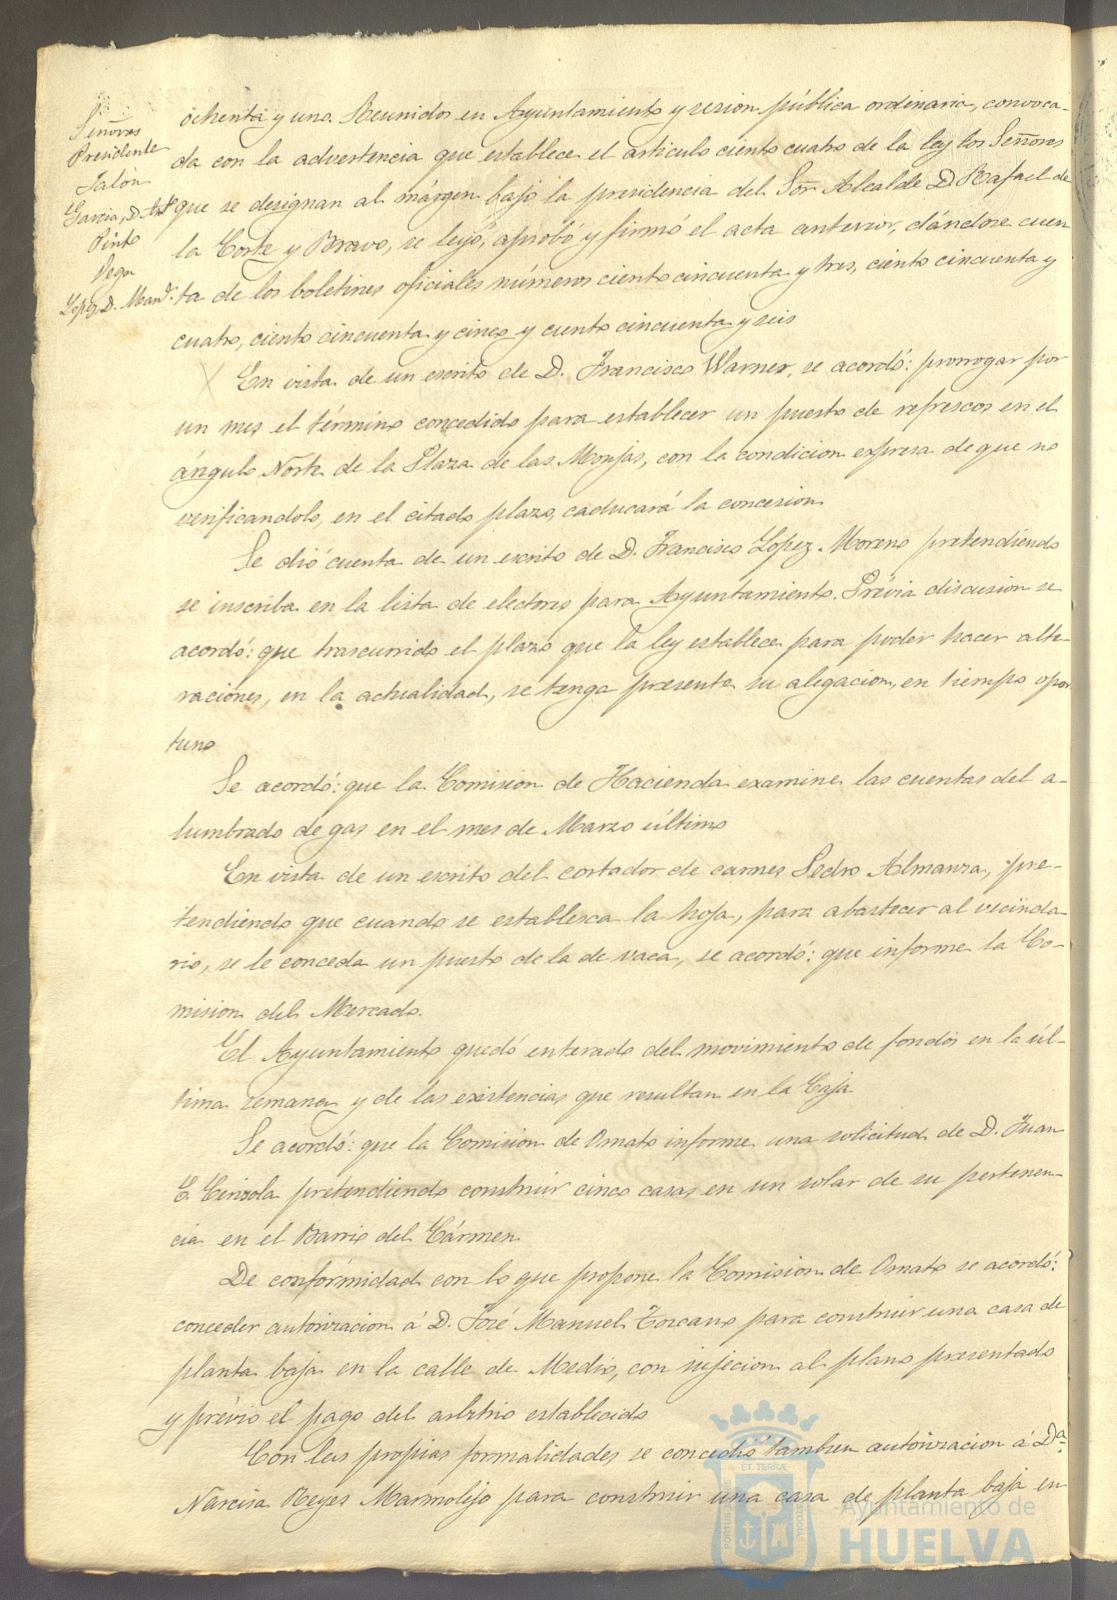 Señores
Presidente
Jalón
Garcia, D. Antº
Pinto
Vega
Lopez, D. Manl.
ochenta y uno. Reunidos en Ayuntamiento y sesion pública ordinaria, convoca-
da con la advertencia que establece el articulo ciento cuatro de la ley los Señores
que se designan al márgen bajo la presidencia del Sor. Alcalde D. Rafael de
la Corte y Bravo, se leyó, aprobó y firmó el acta anterior, dándose cuen
ta de los boletines oficiales números ciento cincuenta y tres, ciento cincuenta y
cuatro, ciento cincuenta y cinco y ciento cincuenta y seis
En vista de un escrito de D. Francisco Warner, se acordó: prorrogar por
un mes el término concedido para establecer un puesto de refrescos en el
ángulo Norte de la Plaza de las Monjas, con la condicion expresa de que no
verificandolo, en el citado plazo, caducará la concesion
Se dió cuenta de un escrito de D. Francisco Lopez Moreno pretendiendo
se inscriba en la lista de electores para Ayuntamiento. Prévia discusion se
acordó: que trascurrido el plazo que la ley establece para poder hacer alte-
raciones, en la actualidad, se tenga presente su alegacion, en tiempo opor
tuno
Se acordó: que la Comision de Hacienda examine las cuentas del a-
lumbrado de gas en el mes de Marzo último
En vista de un escrito del cortador de carnes Pedro Almanza, pre-
tendiendo que cuando se establesca la hoja, para abastecer al vecinda-
rio, se le conceda un puesto de la de vaca, se acordó: que informe la Co-
mision del Mercado.
El Ayuntamiento quedó enterado del movimiento de fondos en la úl-
tima semana y de las existencias que resultan en la Caja
Se acordó: que la Comision de Ornato informe una solicitud de D. Juan
C. pretendiendo construir cinco casas en un solar de su pertenen-
cia en el Barrio del Cármen
De conformidad con lo que propone la Comision de Ornato se acordó:
conceder autorizacion á D. José Manuel Toscano para construir una casa de
planta baja en la calle de Medio, con sujecion al plano presentado
y prévio el pago del arbitrio establecido
Con las propias formalidades se concedió tambien autorizacion á Dª.
Narcisa Reyes Marmolejo para construir una casa de planta baja en
Ayuntamiento de
HUELVA